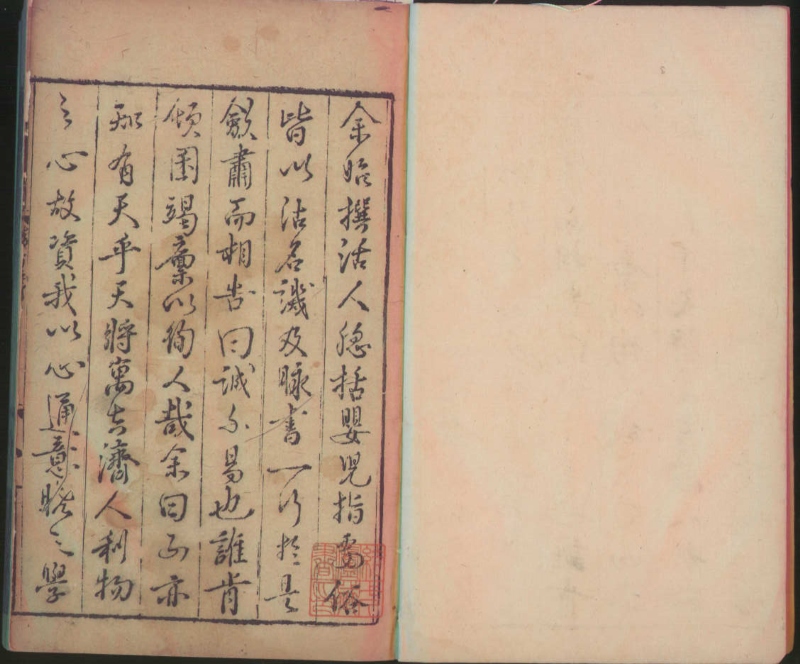 余始撰活人總括嬰兒指要俗
皆以沽名譏及脉書一行於是
歛肅而相告曰誠不易也誰肯
傾囷竭廩以徇人哉余曰不亦
有天乎天將寓其濟人利物
之心故資我以心通意悟之學